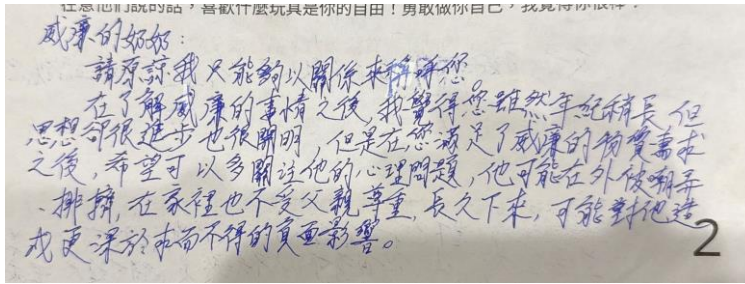 在意他們說的話，喜歡什麼玩具是你的自由！勇敢做你自己，我覺得你很棒！
威廉的奶奶：
請原諒我只能夠以關係來稱呼您
在了解威廉的事情之後，我覺得您雖然年紀稍長，但
思想卻很進步也很開明，但是在您滿足了威廉的物質需求
之後，希望可以多關注他的心理問題，他可能在外被嘲弄
、排擠，在家裡也不受父親尊重，長久下來，可能對他造
成更深於求而不得的負面影響。
2